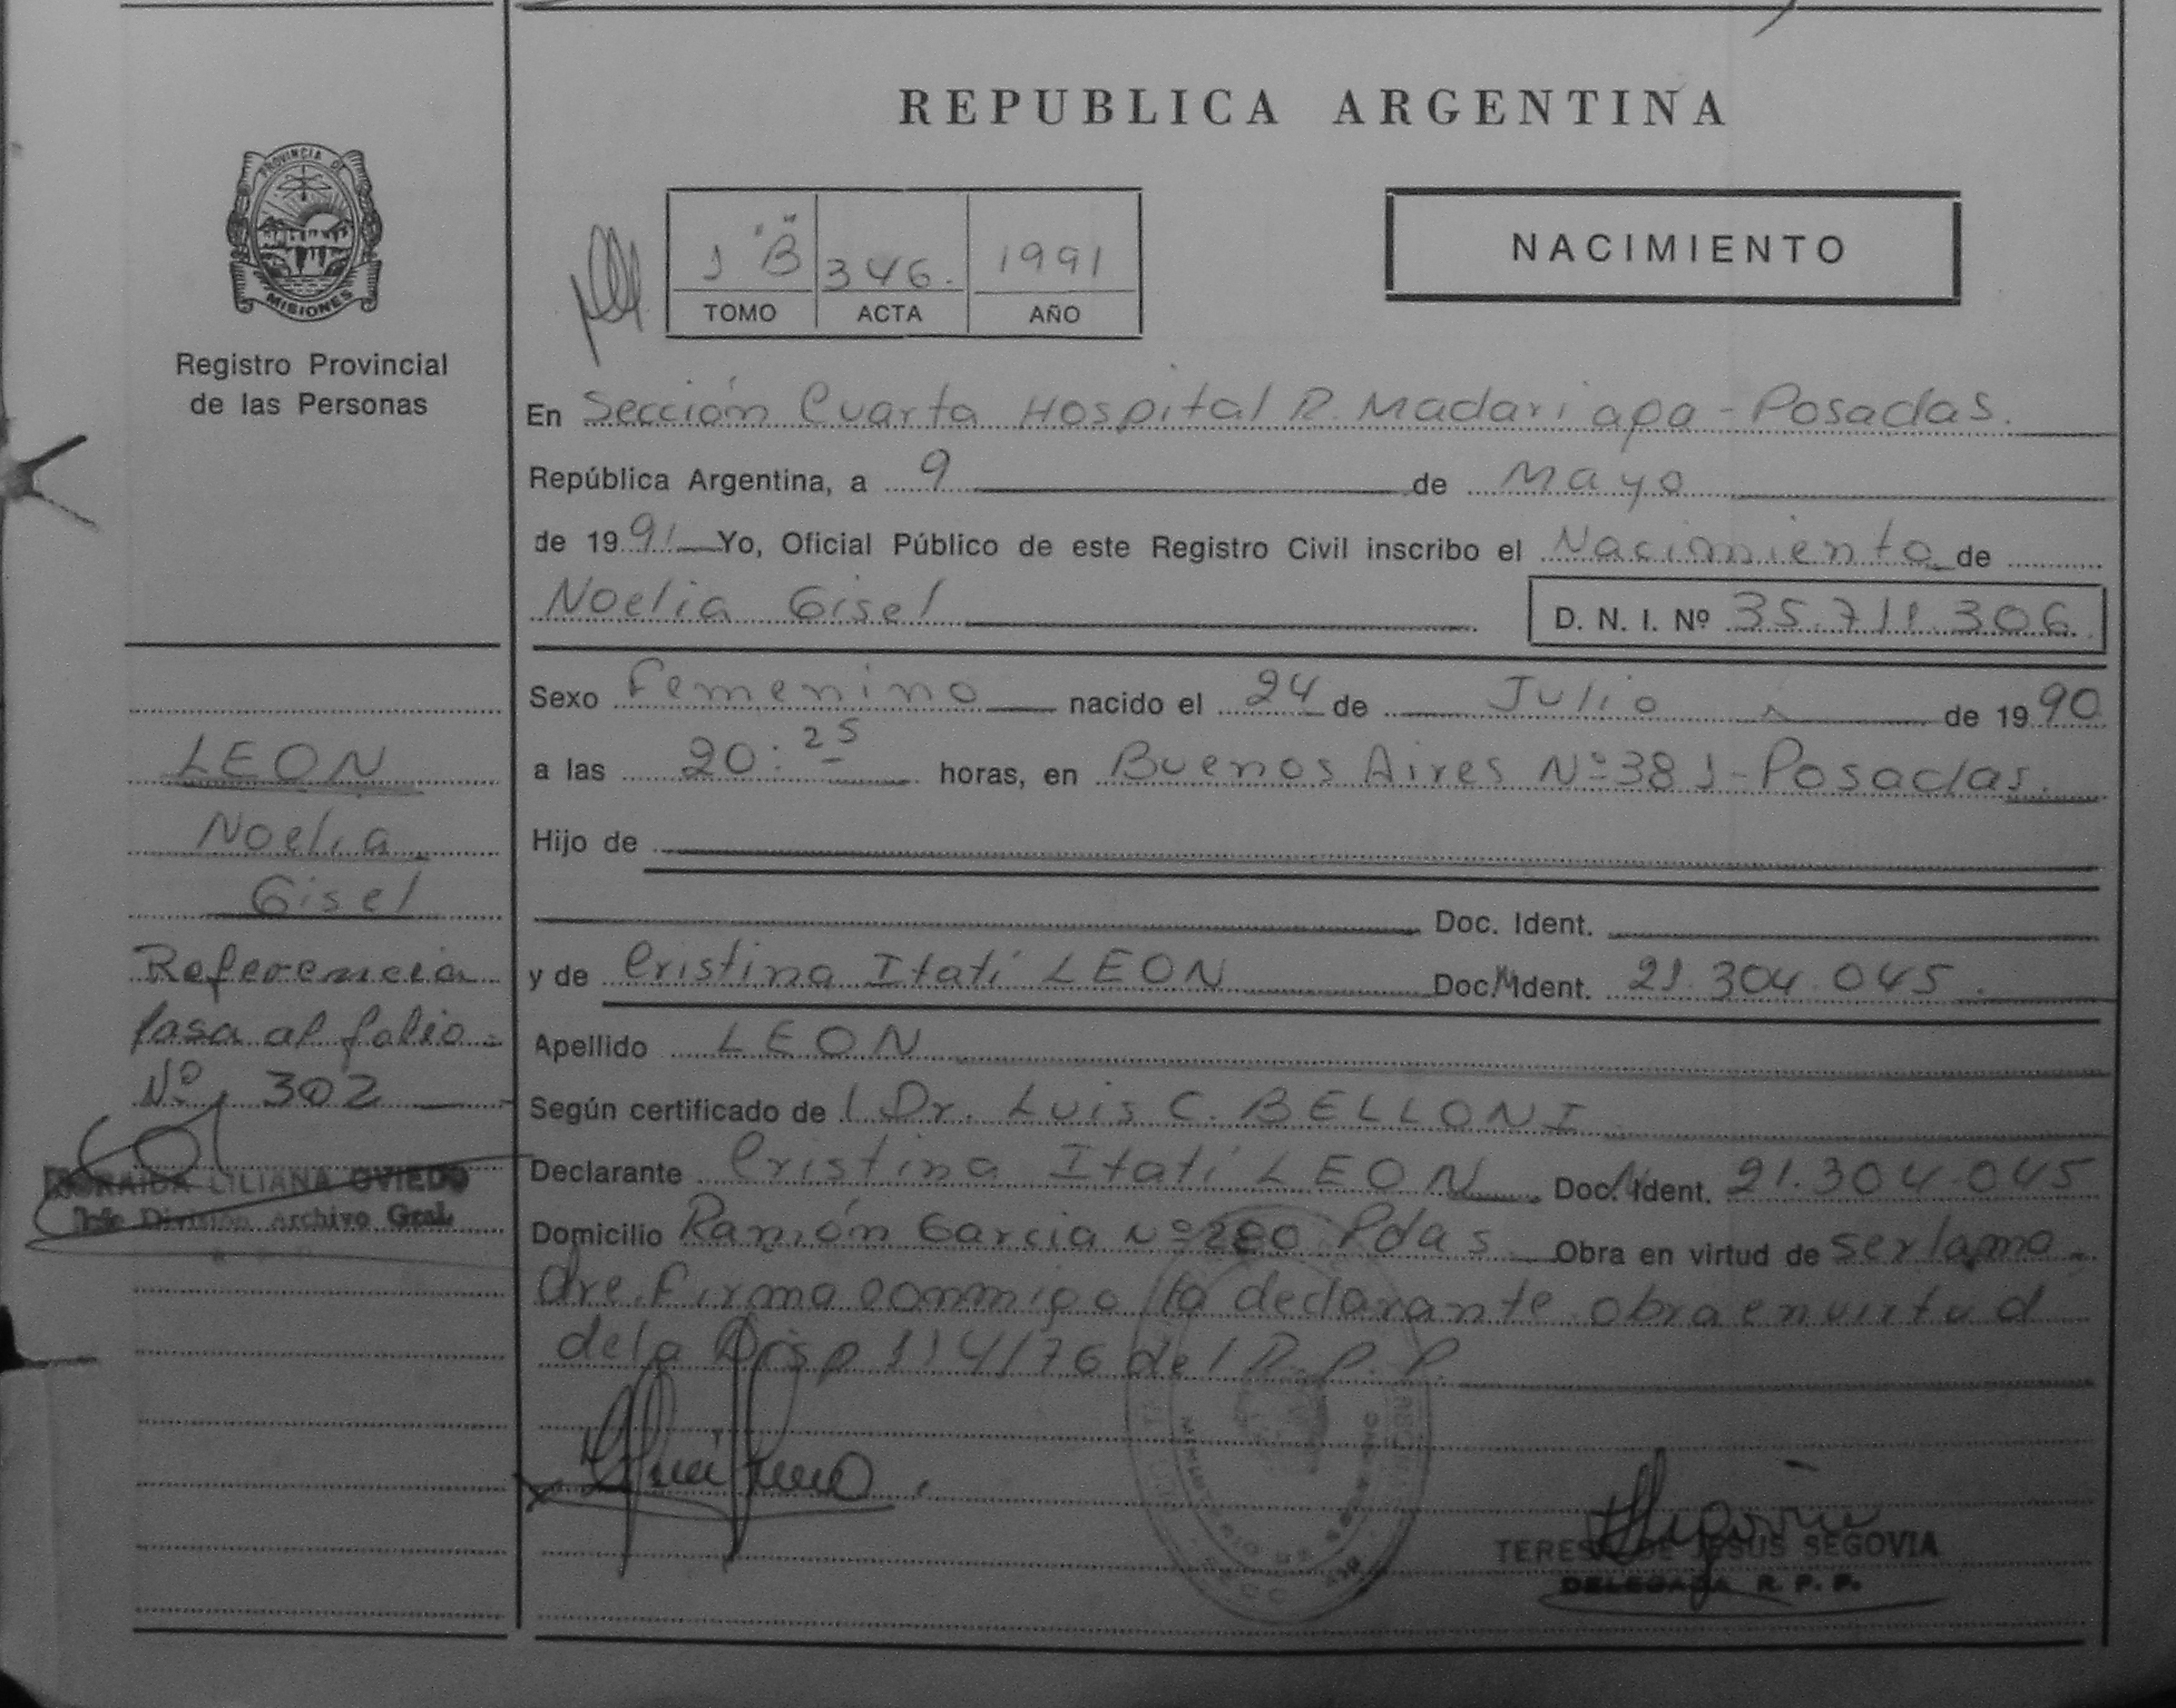 REPUBLICA ARGENTINA
PROVINCIA DE
MISIONES
Registro Provincial
de las Personas
1 "B" 346. 1991
TOMO ACTA AÑO
NACIMIENTO
En Sección Cuarta Hospital R. Madariaga - Posadas.
República Argentina, a 9 de Mayo
de 1991 Yo, Oficial Público de este Registro Civil inscribo el Nacimiento de
Noelia Gisel D. N. I. Nº 35.711.306
Sexo Femenino nacido el 24 de Julio de 1990
a las 20:25 horas, en Buenos Aires Nº 381 - Posadas.
Hijo de
Doc. Ident.
y de Cristina Itatí LEON Doc. Ident. 21.304.045.
Apellido LEON
Según certificado de l Dr. Luis C. BELLONI
Declarante Cristina Itatí LEON Doc. Ident. 21.304.045
Domicilio Ramón Garcia Nº Pdas Obra en virtud de ser la ma-
dre. Firma conmigo la declarante obra en virtud
de la Disp 114/76 del R.P.P.
LEON
Noelia
Gisel
Referencia
pasa al folio
Nº 302
LILIANA OVIEDO
Jefe División Archivo Gral.
TERESA DE JESUS SEGOVIA
DELEGADA R. P. P.